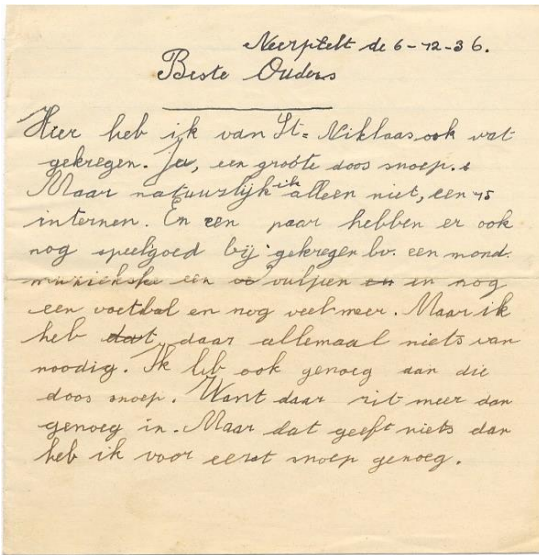 Neerpelt de 6-12-36.
Beste Ouders
Hier heb ik van St= Niklaas ook wat
gekregen. Ja, een groote doos snoep.
Maar natuurlijk ik alleen niet, een 15
internen. En een paar hebben er ook
nog speelgoed bij gekregen bv. een mond
muziekske een vulpen en nog
een voetbal en nog veel meer. Maar ik
heb daar allemaal niets van
noodig. Ik heb ook genoeg aan die
doos snoep. Want daar zit meer dan
genoeg in. Maar dat geeft niets dan
heb ik voor eerst snoep genoeg.